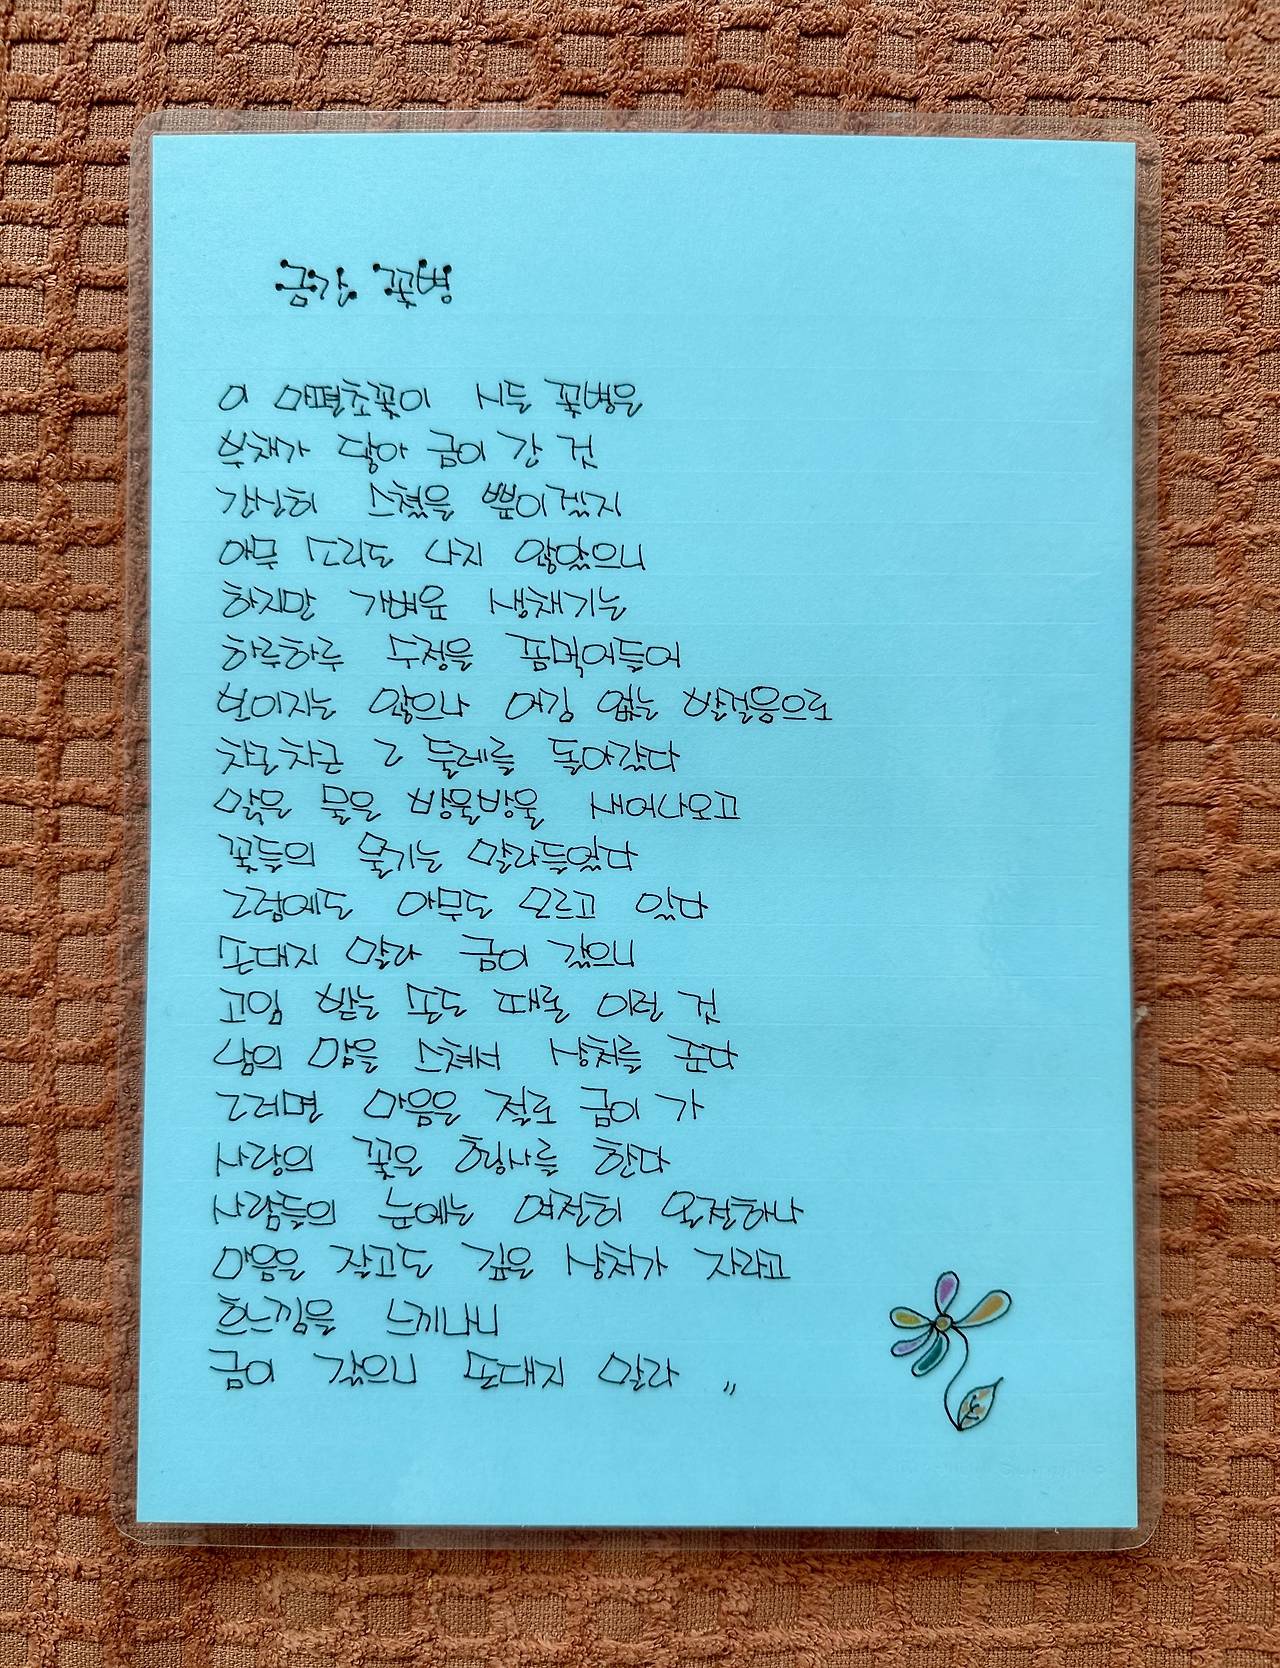 금간 꽃병
이 마편초꽃이 시든 꽃병은
부채가 닿아 금이 간 것
간신히 스쳤을 뿐이겠지
아무 소리도 나지 않았으니
하지만 가벼운 생채기는
하루하루 수정을 좀먹어들어
보이지는 않으나 어김 없는 발걸음으로
차근차근 그 둘레를 돌아갔다
맑은 물은 방울방울 새어나오고
꽃들의 물기는 말라들었다
그럼에도 아무도 모르고 있다
손대지 말라 금이 갔으니
고임 받는 손도 때론 이런 것
남의 맘을 스쳐서 상처를 준다
그러면 마음은 절로 금이 가
사랑의 꽃은 횡사를 한다
사람들의 눈에는 여전히 온전하나
마음은 잘고도 깊은 상처가 자라고
흐느낌을 느끼나니
금이 갔으니 손대지 말라 〃